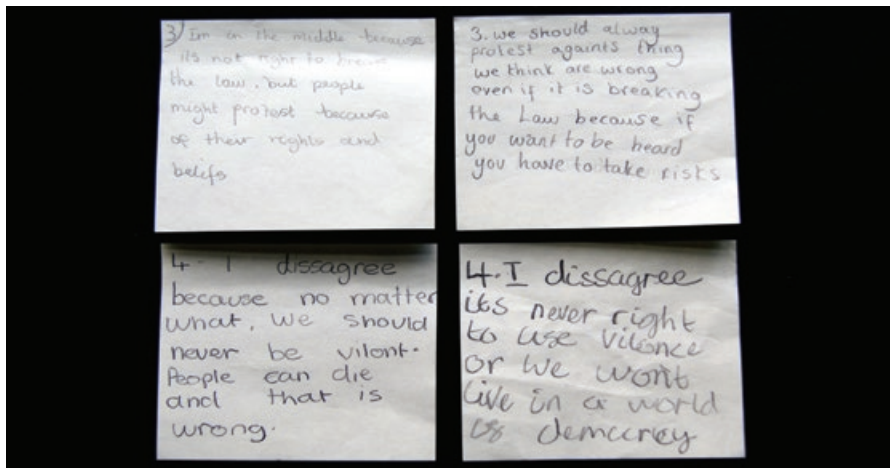 3) Im on the middle because
its not right to break
the law, but people
might protest because
of their rights and
belifs
3. we should alway
protest againts thing
we think are wrong
even if it is breaking
the Law because if
you want to be heard
you have to take risks
4. I dissagree
because no matter
what, we should
never be vilont.
People can die
and that is
wrong.
4. I dissagree
its never right
to use vilonce
or we wont
live in a world
democricy